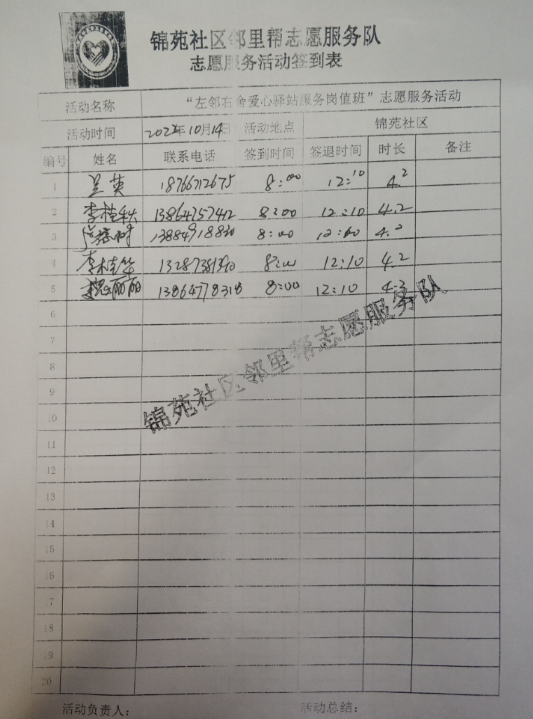 锦苑社区邻里帮志愿服务队
志愿服务活动签到表
活动名称 “左邻右舍爱心驿站服务岗值班”志愿服务活动
活动时间 2022年10月14日 活动地点 锦苑社区
编号 姓名 联系电话 签到时间 签退时间 时长 备注
1 吴英 18766712675 8:00 12:10 4.2
2 李桂秋 8:00 12:10 4.2
3 13884918830 8:00 4.2
4 李桂华 8:00 12:10 4.2
5 魏丽丽 13864778318 8:00 12:10
6
7
8
锦苑社区邻里帮志愿服务队
9
10
11
12
13
14
15
16
17
18
19
20
活动负责人： 活动总结：